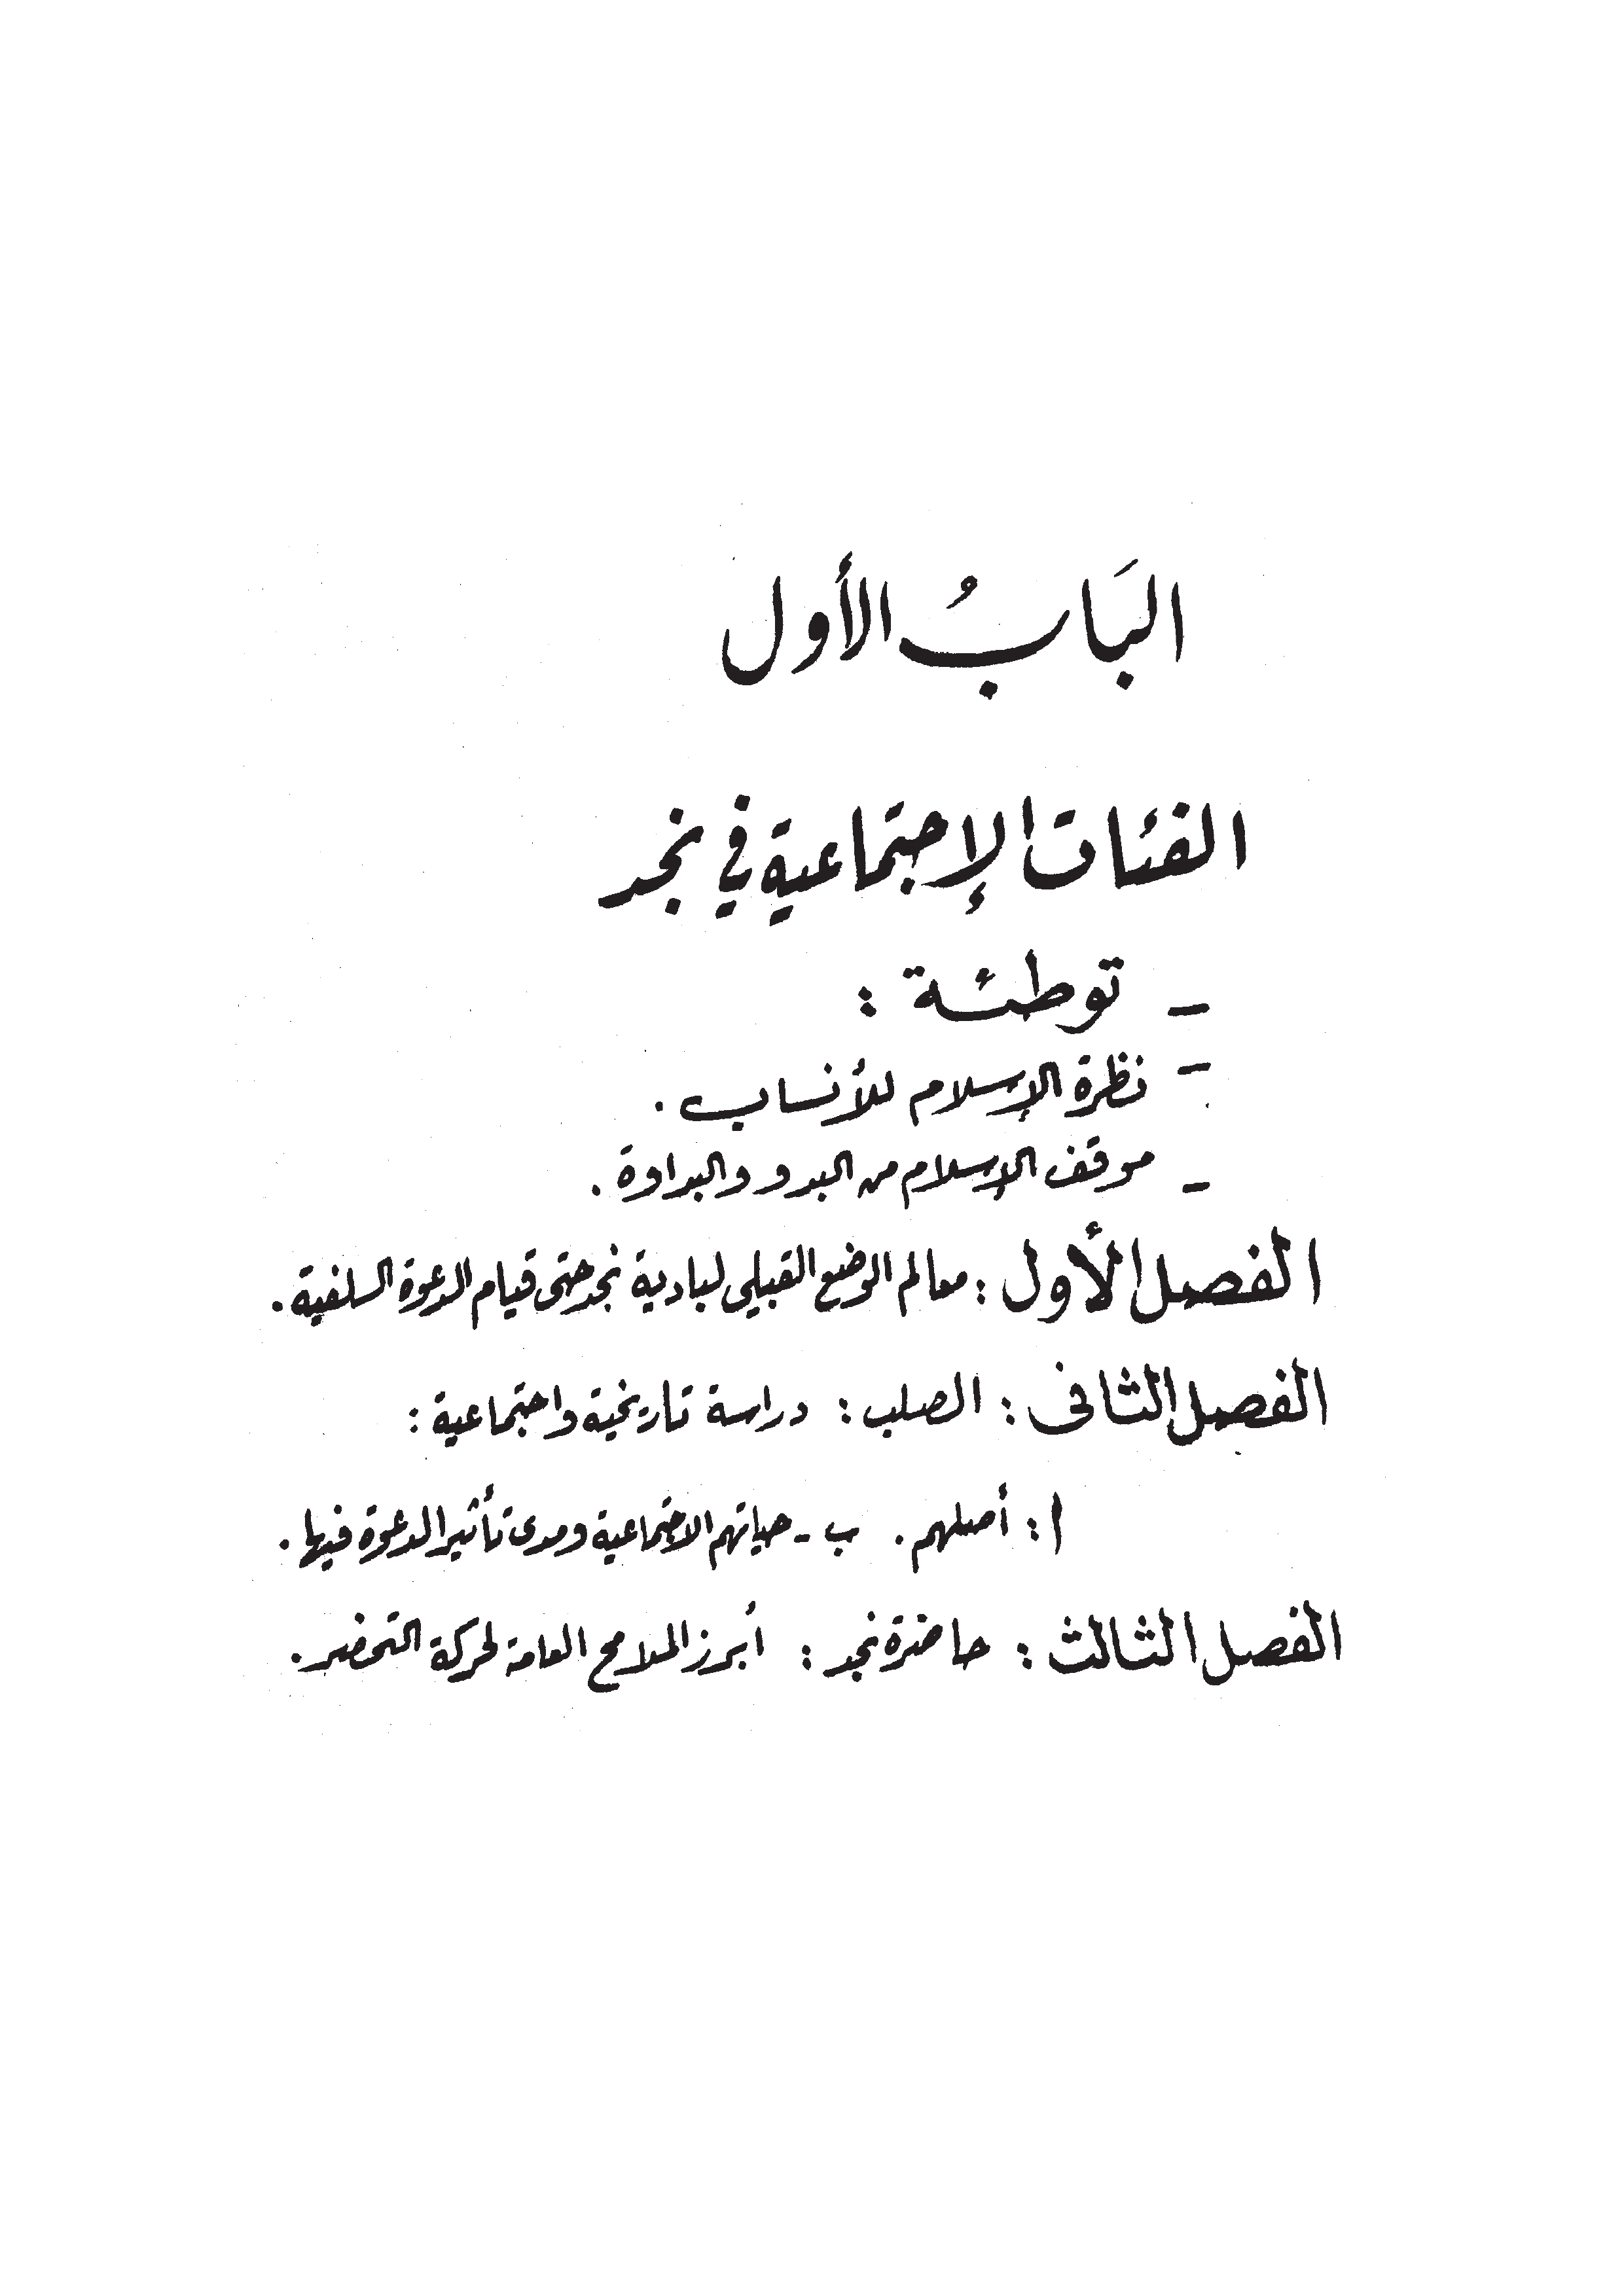 البَابُ الأول
الفئات الإجتماعية في نجد
- توطئة :
- نظرة الإسلام للأنساب .
- موقف الإسلام من البدو والبداوة .
الفصل الأول : معالم الوضع القبلي لبادية نجد حتى قيام الدعوة السلفية .
الفصل الثانى : الصلب : دراسة تاريخية واجتماعية :
ا : أصلهم . ب - حياتهم الاجتماعية ومدى تأثير الدعوة فيها .
الفصل الثالث : حاضرة نجد : أبرز الملامح العامة لحركة التحضر .